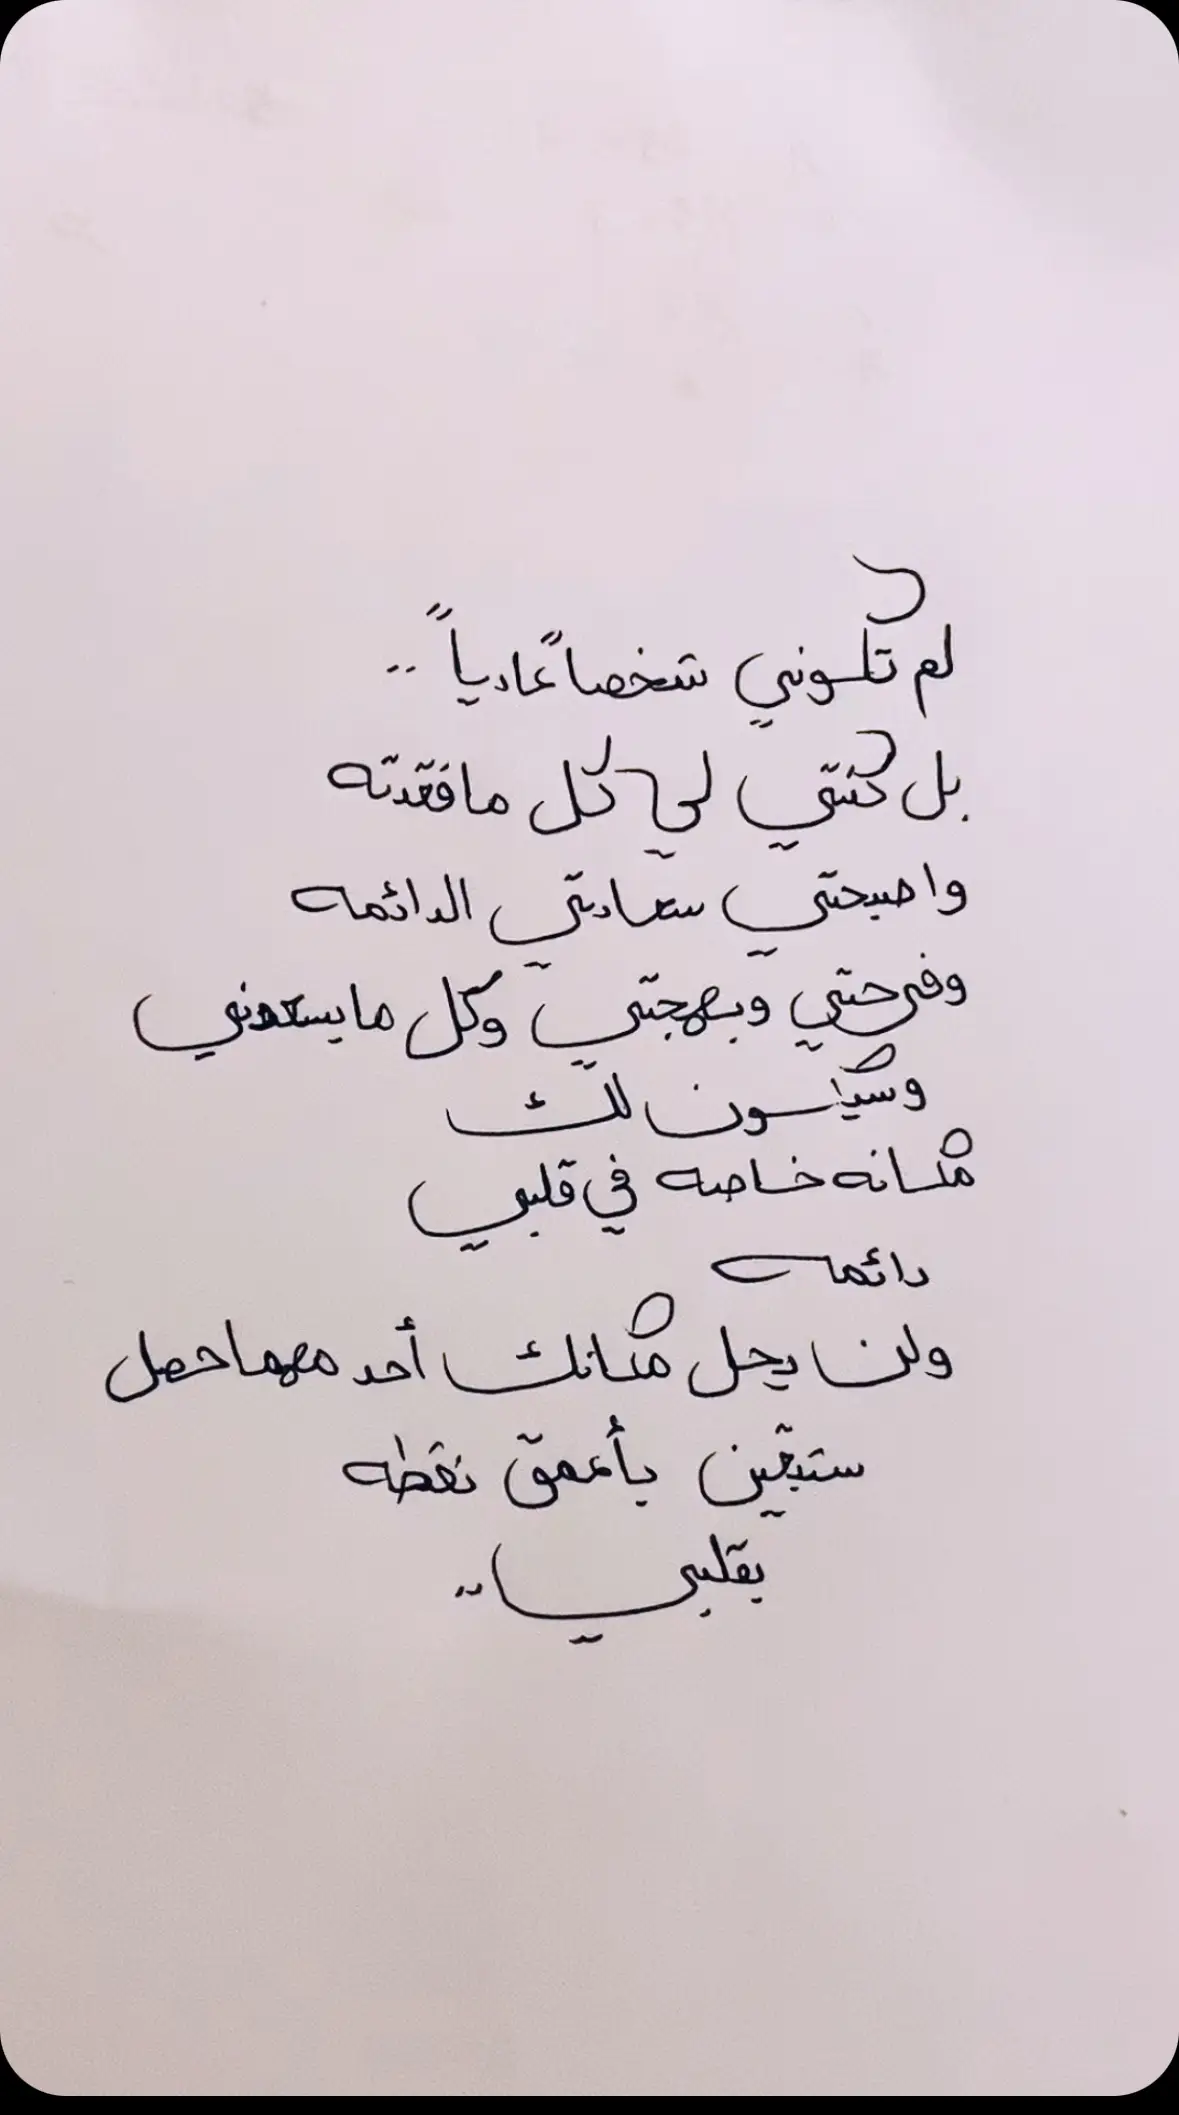 لم تكوني شخصاً عادياً ..
بل كنتي لي كل مافقدته
واصبحتي سعادتي الدائمه
وفرحتي وبهجتي وكل مايسعدني
وسيكون لك
مكانه خاصه في قلبي
دائمه
ولن يحل مكانك أحد مهما حصل
ستبقين بأعمق نقطه
بقلبي ..